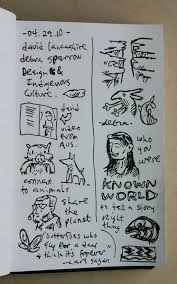 -04.29.10-
david lancashire
debra sparrow
Design &
Indigenous
Culture
david
video
from
Aus.
connect
to animals
share
the
planet
"butterflies who
fly for a day
& think its forever"
-carl sagan
-debra-
who
you
were
KNOWN
WORLD
to tell a story
right
thing